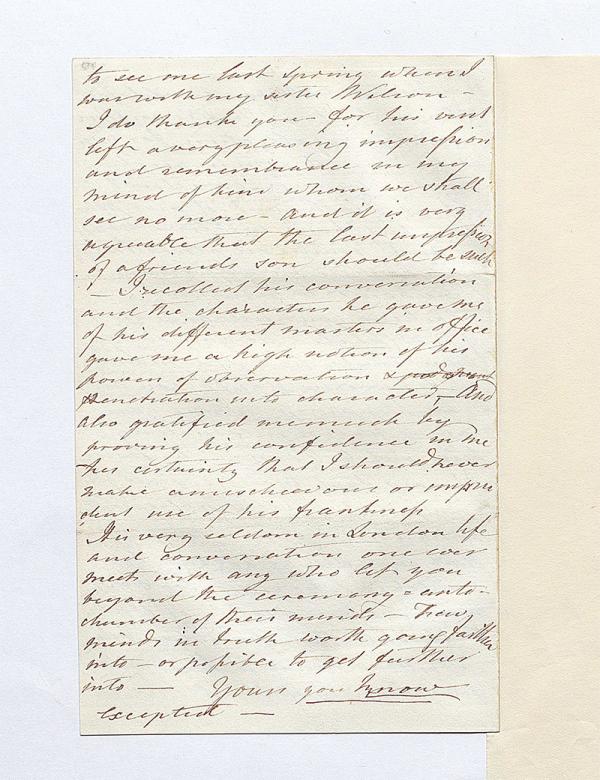 to see me last spring when I
was with my sister Wilson —
I do thank you – for his visit
left a very pleasing impression
and remembrance in my
mind of him whom we shall
see no more – and it is very
agreeable that the last impression
of a friends son should be such
– I recollect his conversation
and the characters he gave me
of his different masters in office
gave me a high notion of his
powers of observation & judgment
& penetration into character – And
also gratified me much by
proving his confidence in me
his certainty that I should never
make a mischievous or impru
dent use of his frankness
It is very seldom in London life
and conversation one ever
meets with any who let you
beyond the ceremony – anti-
chamber of their minds – Few
minds in truth worth going farther
into – or possible to get further
into — Yours you know
excepted —